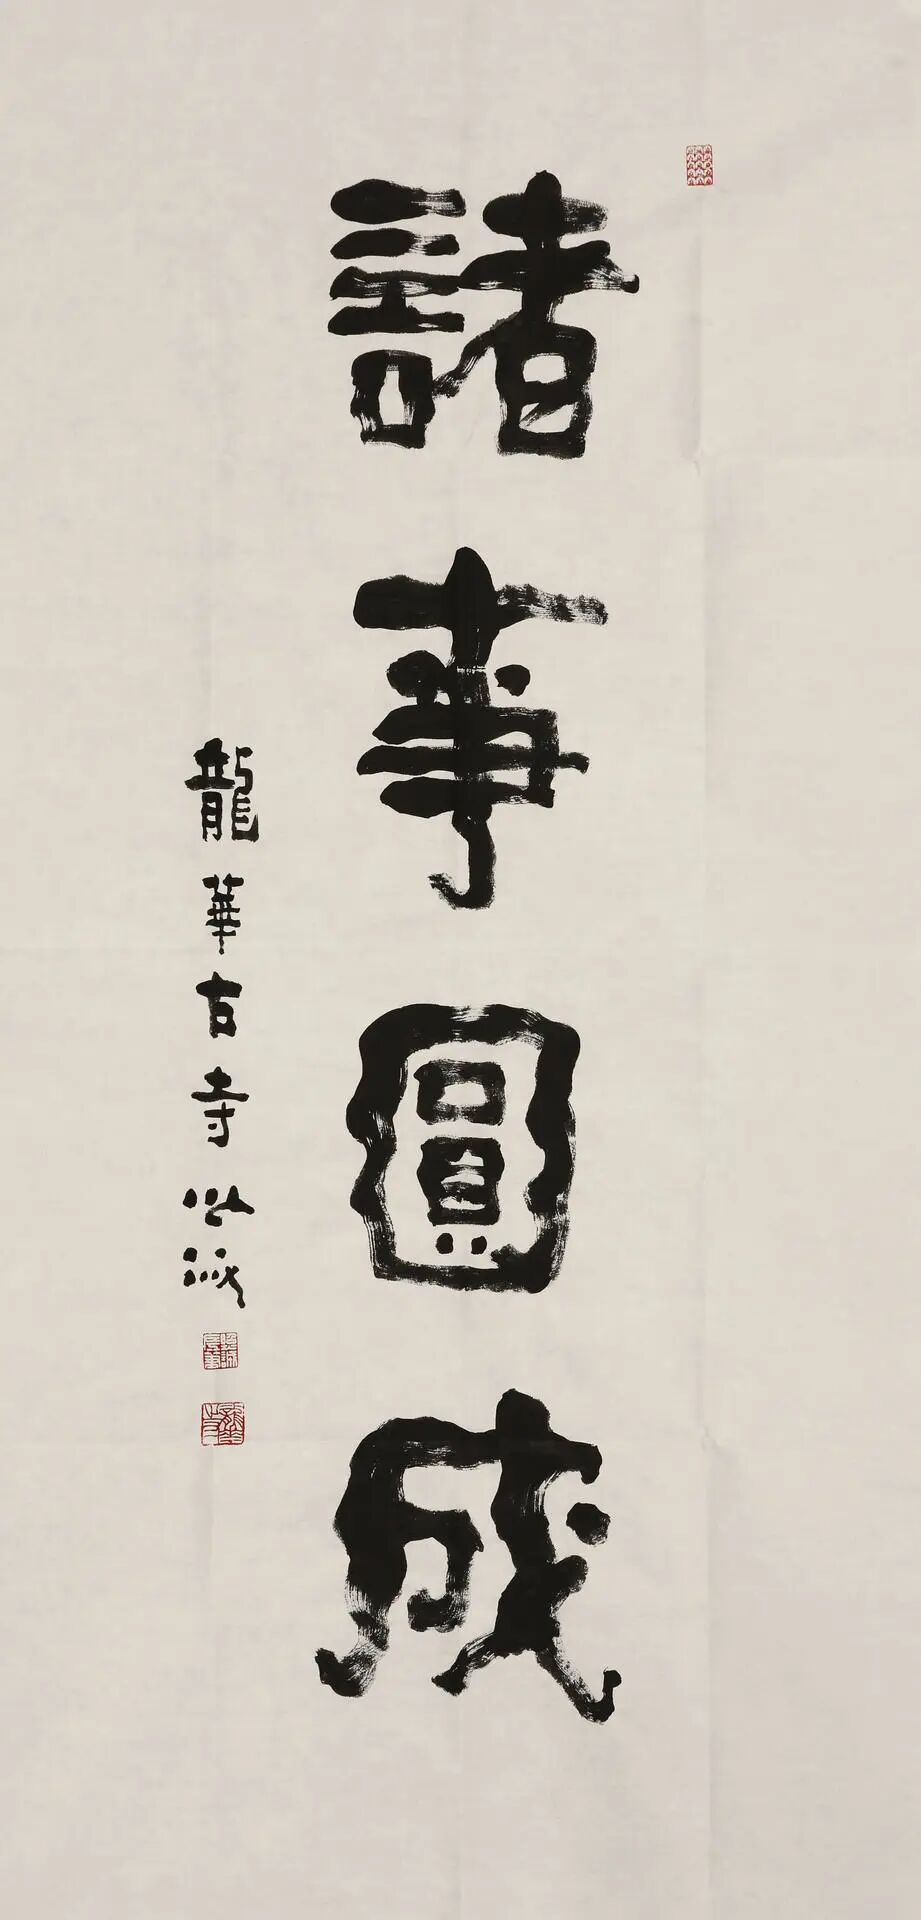 諸事圓成
龍華古寺照誠